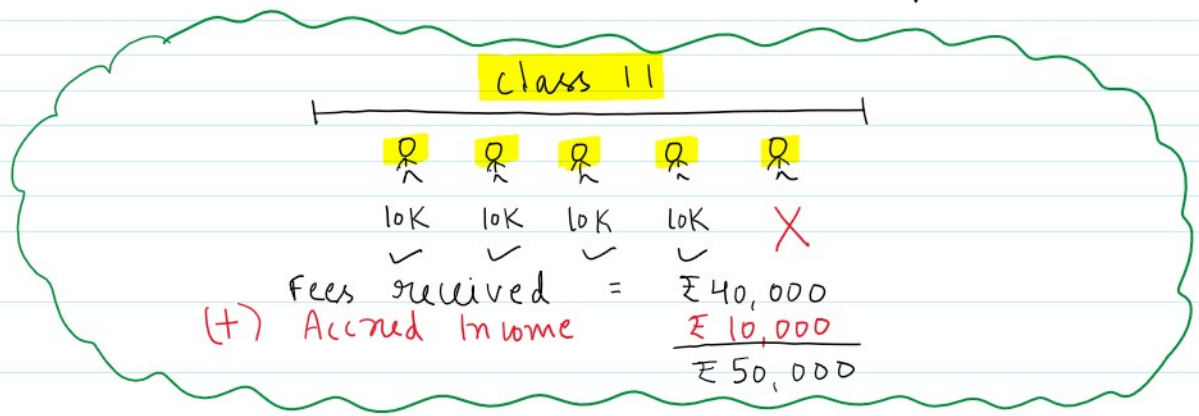 class 11
10K 10K 10K 10K X
Fees received = ₹40,000
(+) Accrued Income ₹ 10,000
₹ 50,000